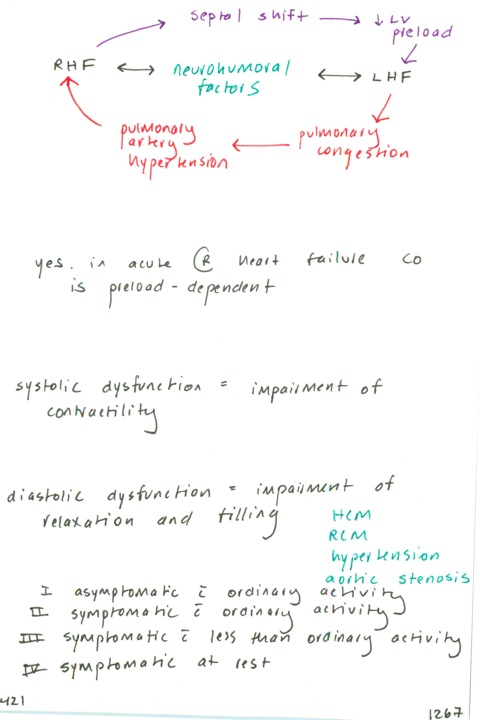 septal shift → ↓ LV
preload
RHF ↔ neurohumoral ↔ LHF
factors
pulmonary
artery ← pulmonary
hypertension congestion
yes. in acute Ⓡ heart failure CO
is preload-dependent
systolic dysfunction = impairment of
contractility
diastolic dysfunction = impairment of
relaxation and filling
HCM
RCM
hypertension
aortic stenosis
I asymptomatic c̄ ordinary activity
II symptomatic c̄ ordinary activity
III symptomatic c̄ less than ordinary activity
IV symptomatic at rest
421
1267